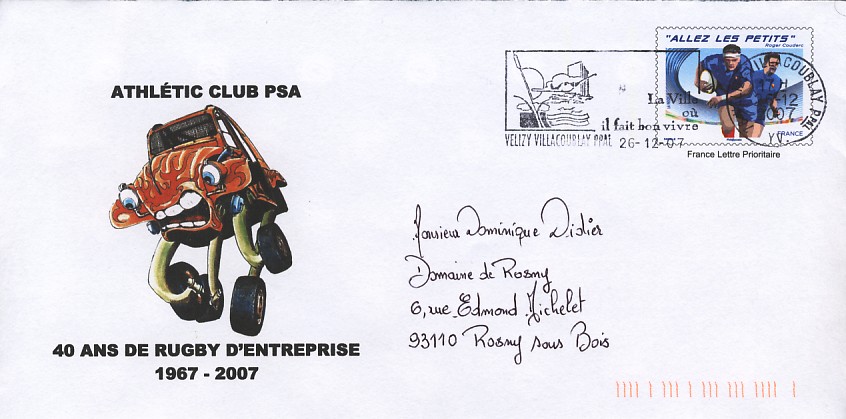 "ALLEZ LES PETITS"
Roger Couderc
ATHLÉTIC CLUB PSA
La Ville
où
il fait bon vivre
VELIZY VILLACOUBLAY PPAL 26-12-07
FRANCE
France Lettre Prioritaire
Monsieur Dominique Didier
Domaine de Rosny
6, rue Edmond Michelet
93110 Rosny sous Bois
40 ANS DE RUGBY D'ENTREPRISE
1967 - 2007